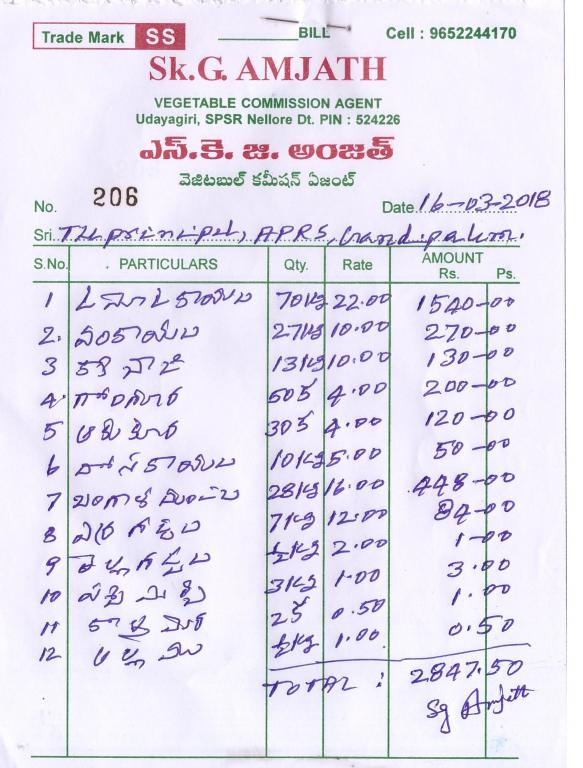 Trade Mark SS BILL Cell : 9652244170
Sk.G. AMJATH
VEGETABLE COMMISSION AGENT
Udayagiri, SPSR Nellore Dt. PIN : 524226
ఎస్.కె. జి. అంజత్
వెజిటబుల్ కమీషన్ ఏజంట్
No. 206 Date 16-03-2018
Sri. APRS,
S.No. PARTICULARS Qty. Rate AMOUNT Rs. Ps.
1 70kg 22.00 1540-00
2. వంకాయలు 27kg 10.00 270-00
3 13kg 10.00 130-00
4. గోంగూర 50 4.00 200-00
5 30 4.00 120-00
6 దోసకాయలు 10kg 5.00 50-00
7 28kg 16.00 448-00
8 7kg 12.00 84-00
9 ½kg 2.00 1-00
10 పచ్చి మిర్చి 3kg 1.00 3.00
11 2 0.50 1.00
12 ½kg 1.00 0.50
TOTAL : 2847.50
Sg Amjath